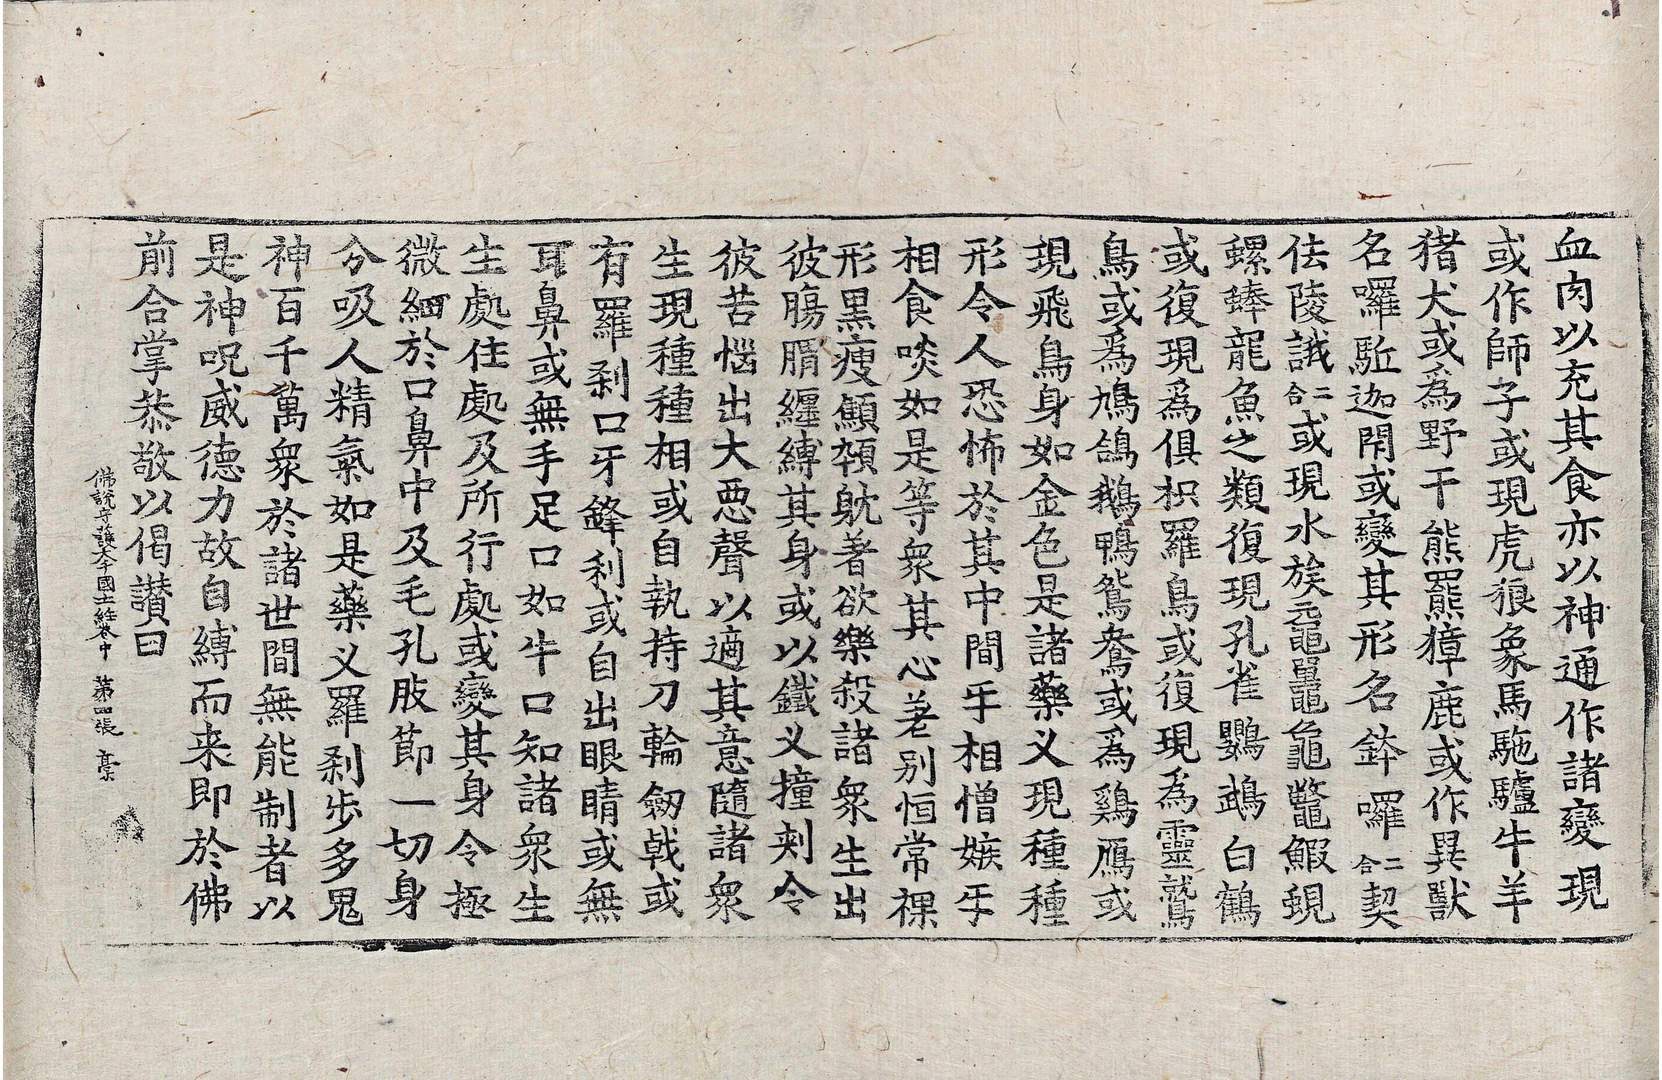 血肉以充其食亦以神通作諸變現
或作師子或現虎狼象馬駞驢牛羊
猪犬或爲野干熊羆獐鹿或作異獸
名囉駈迦閇或變其形名鉢囉二合契
佉陵誐二合或現水族黿鼉龜鼈鰕蜆
螺蜯龍魚之類復現孔雀鸚鵡白鶴
或復現爲俱枳羅鳥或復現爲靈鷲
鳥或爲鳩鴿鵝鴨鴛鴦或爲鷄鴈或
現飛鳥身如金色是諸藥叉現種種
形令人恐怖於其中間㸦相憎嫉㸦
相食啖如是等衆其心差别恒常祼
形黑瘦顦顇躭著欲樂殺諸衆生出
彼膓胴纏縛其身或以鐵叉撞刾令
彼苦惱出大惡聲以適其意隨諸衆
生現種種相或自執持刀輪劒戟或
有羅刹口牙鋒利或自出眼睛或無
耳鼻或無手足口如牛口知諸衆生
生處住處及所行處或變其身令極
微細於口鼻中及毛孔肢節一切身
分吸人精氣如是藥叉羅刹步多鬼
神百千萬衆於諸世間無能制者以
是神呪威德力故自縛而来即於佛
前合掌恭敬以偈讃曰
佛說守護大千國土經卷中 第四張